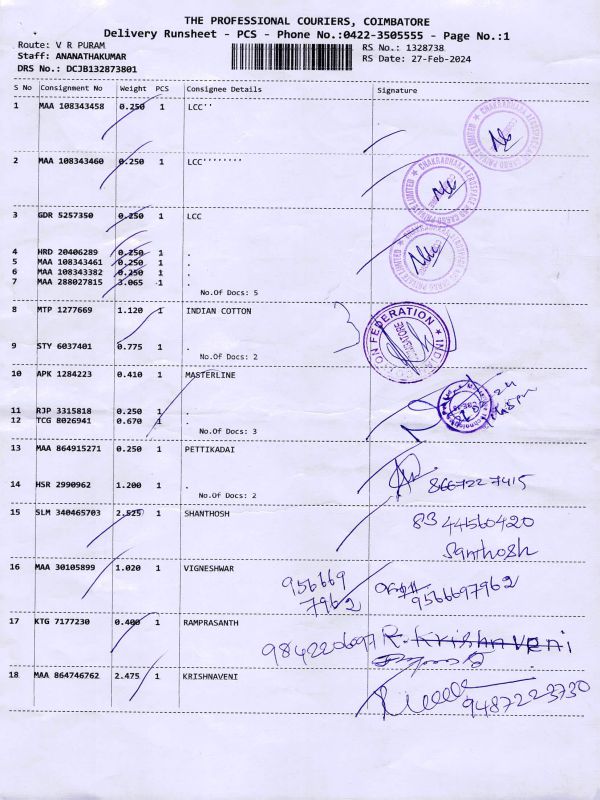 THE PROFESSIONAL COURIERS, COIMBATORE
Delivery Runsheet - PCS - Phone No.:0422-3505555 - Page No.:1
Route: V R PURAM
Staff: ANANATHAKUMAR
DRS No.: DCJB132873801
RS No.: 1328738
RS Date: 27-Feb-2024
S No Consignment No Weight PCS Consignee Details Signature
1 MAA 108343458 0.250 1 LCC''
2 MAA 108343460 0.250 1 LCC''''''''
3 GDR 5257350 0.250 1 LCC
4 HRD 20406289 0.250 1 .
5 MAA 108343461 0.250 1 .
6 MAA 108343382 0.250 1 .
7 MAA 288027815 3.065 1 .
No.Of Docs: 5
8 MTP 1277669 1.120 1 INDIAN COTTON
9 STY 6037401 0.775 1 .
No.Of Docs: 2
10 APK 1284223 0.410 1 MASTERLINE
11 RJP 3315818 0.250 1 .
12 TCG 8026941 0.670 1 .
No.Of Docs: 3
13 MAA 864915271 0.250 1 PETTIKADAI
14 HSR 2990962 1.200 1 .
No.Of Docs: 2
8667227415
15 SLM 340465703 2.525 1 SHANTHOSH
8344560420
Santhosh
16 MAA 30105899 1.020 1 VIGNESHWAR
956669
7962
9566697962
17 KTG 7177230 0.400 1 RAMPRASANTH
9842206097 R. Krishnaveni
18 MAA 864746762 2.475 1 KRISHNAVENI
9487223730